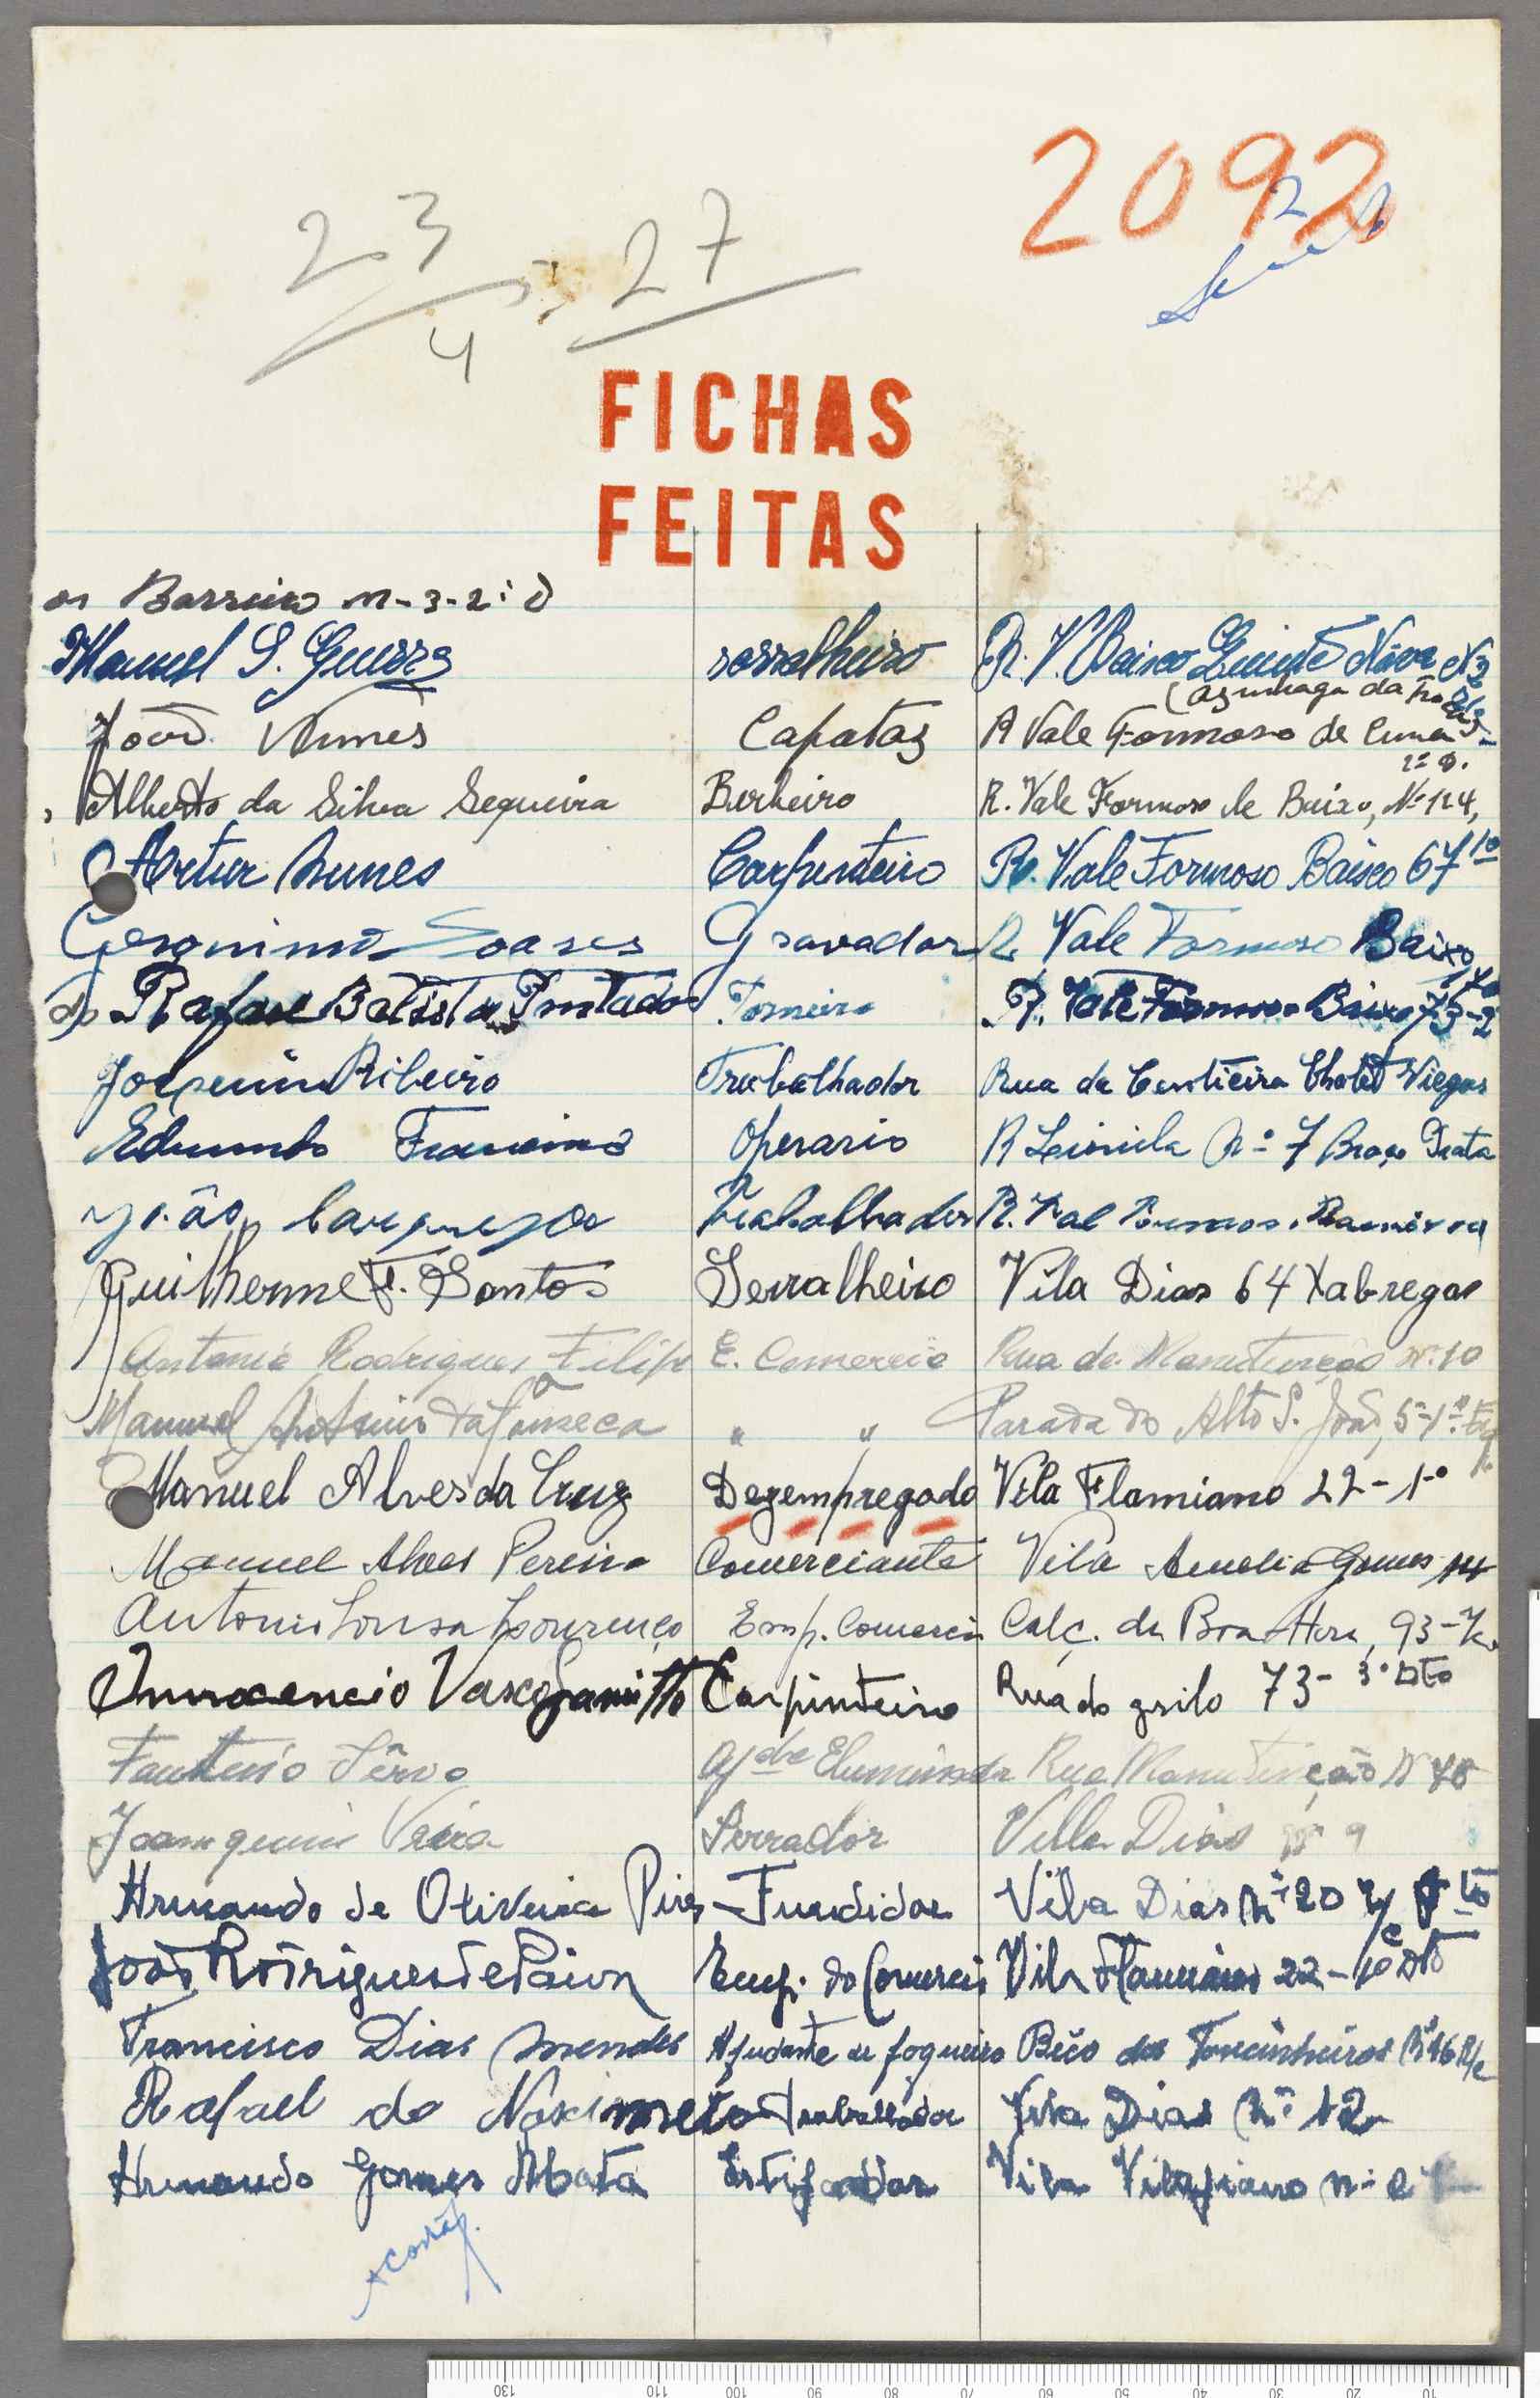 2092
23 27
4
FICHAS
FEITAS
Barreiro n-3-2º D
Manuel S. Guerra serralheiro R. V. Baixo Quinté Nova Nº2
(azinhaga da
João Nunes Capataz R Vale Formoso de Cima
1º D.
Alberto da Silva Sequeira Barbeiro R. Vale Formoso de Baixo, Nº 124,
Artur Nunes Carpenteiro R. Vale Formoso Baixo 67 1º
Geronimo Soares Gravador R Vale Formoso Baixo
Rafael Batista Torneiro R. Vale Formoso Baixo 73-2
Joaquim Ribeiro Trabalhador Rua da Centieira Chalet Viegas
Edmundo Operario R Nº 7 Braço Prata
João Trabalhador R. Val
Guilherme F. Santos Serralheiro Vila Dias 64 Xabregas
Antonio Rodrigues Filipe E. Comercio Rua da Manutenção nº 10
Manuel Antonio da Fonseca " " Parada do Alto S. João, 5-1º
Manuel Alves da Cruz Dezempregado Vila Flamiano 22-1º
Manuel Alves Pereira Comerciante Vila Amelia Gomes 14
Antonio Sousa Lourenço Emp. Comercio Calç. da Boa Hora, 93-
Innocencio Vasco Carpinteiro Rua do grilo 73- 3º Dto
Ajde Rua Manutenção Nº 48
Joamquim Serrador Villa Dias nº 9
Armando de Oliveira Pires - Fundidor Vila Dias nº 20
João Rodrigues de Paiva Emp. do Comercio Vila Flamiano 22-1º Dto
Francisco Dias Mendes Ajudante de fogueiro Beco dos Toucinheiros Nº 16 R/c
Rafael do Nascimeto Trabalhador Vila Dias Nº 12
Armando Gomes Mata Estifador Vila nº